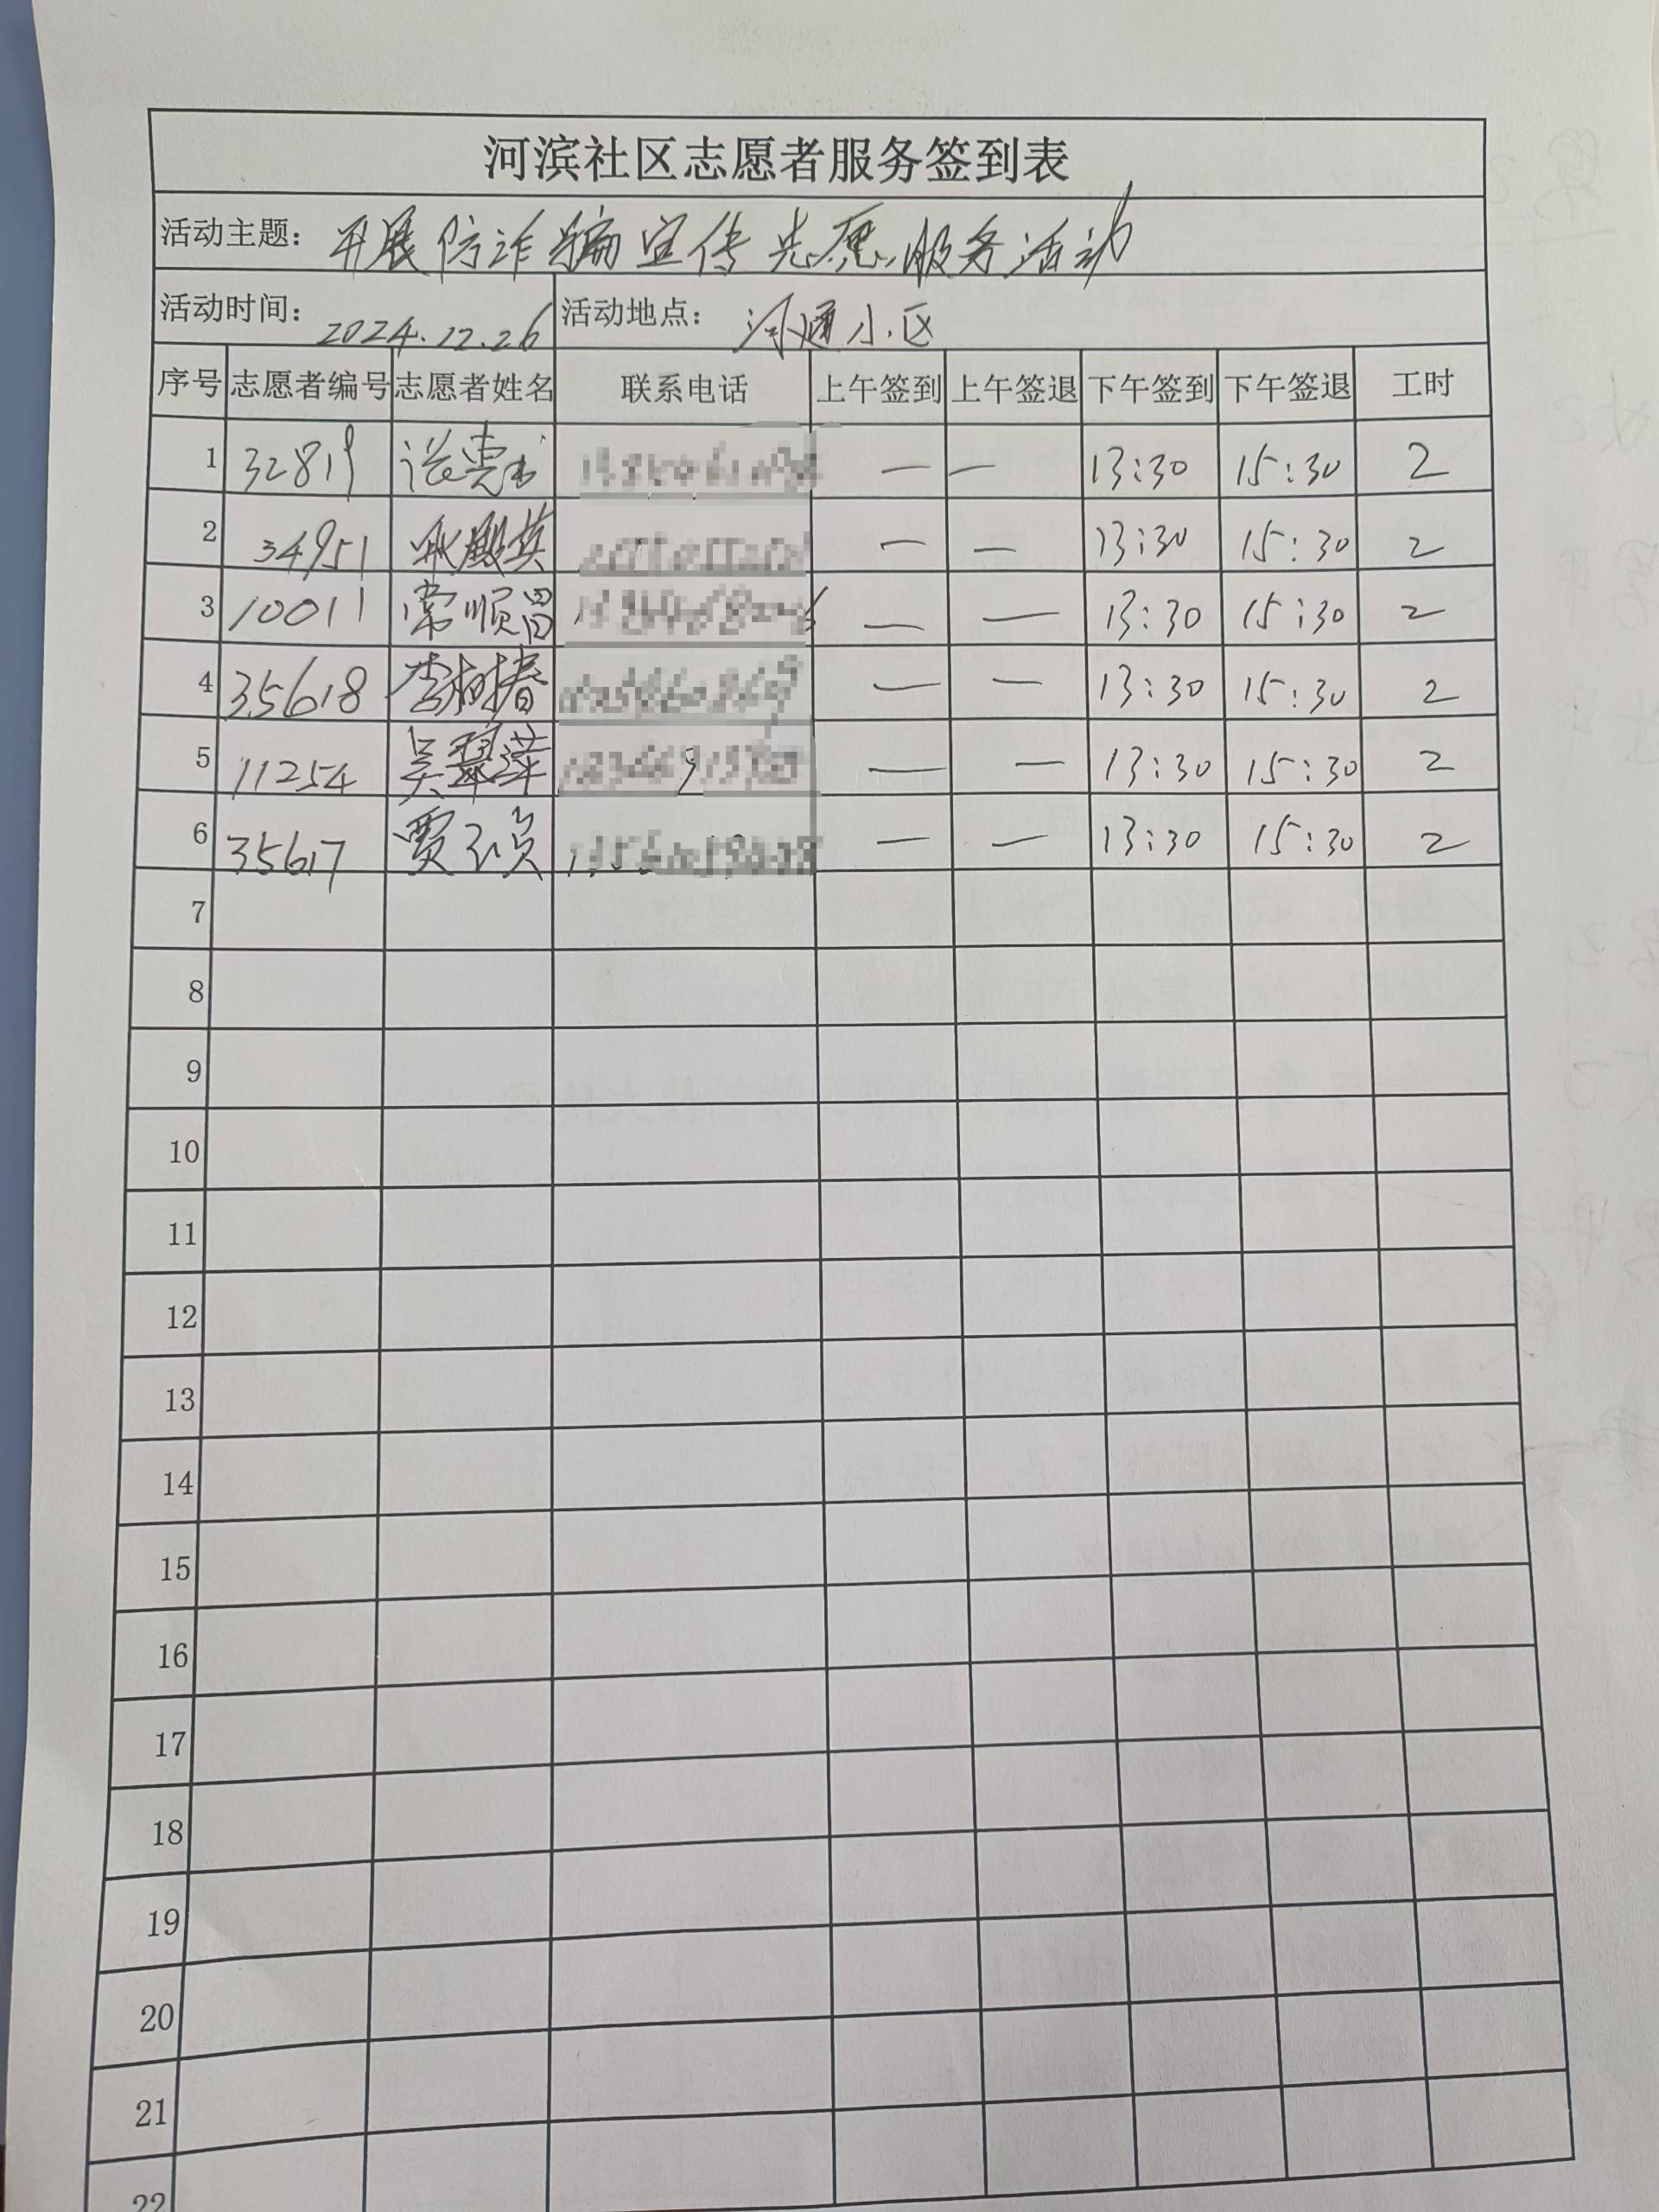 河滨社区志愿者服务签到表
活动主题：开展防诈骗宣传志愿服务活动
活动时间：2024.12.26 活动地点：河通小区
序号 志愿者编号 志愿者姓名 联系电话 上午签到 上午签退 下午签到 下午签退 工时
1 32819 — — 13:30 15:30 2
2 34951 — — 13:30 15:30 2
3 10011 常顺昌 — — 13:30 15:30 2
4 35618 李树春 — — 13:30 15:30 2
5 11254 吴翠萍 — — 13:30 15:30 2
6 35617 贾 — — 13:30 15:30 2
7
8
9
10
11
12
13
14
15
16
17
18
19
20
21
22